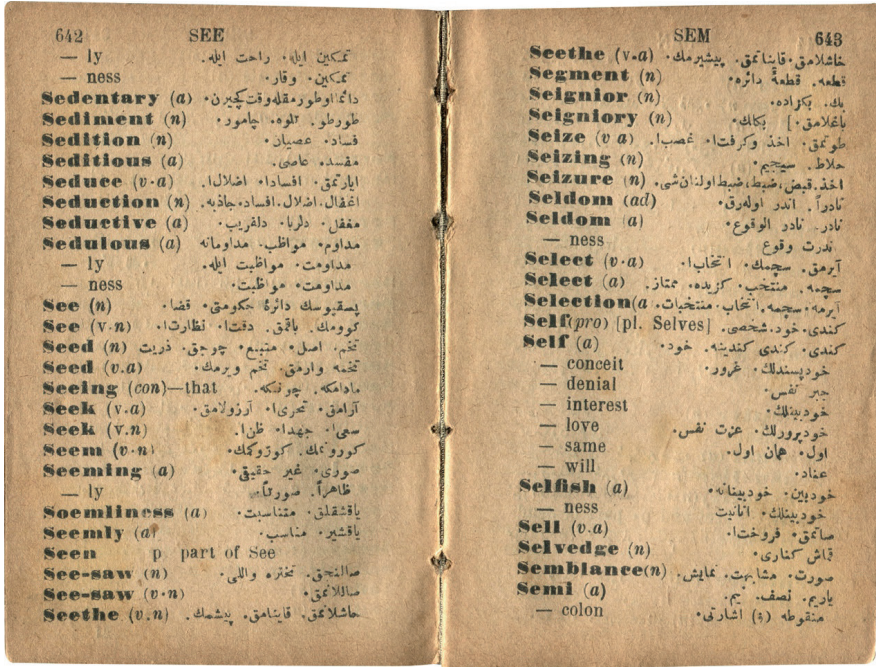 642 SEE
— ly تمكين ايله. راحت ايله.
— ness تمكين. وقار.
Sedentary (a) دائما اوطورمقله وقت كچيرن.
Sediment (n) طورطو. تلوه. چامور.
Sedition (n) فساد. عصيان.
Seditious (a) مفسد. عاصى.
Seduce (v.a) ايارتمق. افسادا. اضلالا.
Seduction (n) اغفال. اضلال. افساد. جاذبه.
Seductive (a) مغفل. دلربا. دلفريب.
Sedulous (a) مداوم. مواظب. مداومانه
— ly مداومت. مواظبت ايله.
— ness مداومت. مواظبت.
See (n) پسقپوسك دائرۀ حكومتى. قضا.
See (v.n) كورمك. باقمق. دقتا. نظارتا.
Seed (n) تخم. اصل. منبع. چوجق. ذريت
Seed (v.a) تخمه وارمق. تخم ويرمك.
Seeing (con)—that مادامكه. چونكه.
Seek (v.a) آرامق. تحرىا. آرزولامق.
Seek (v.n) سعىا. جهدا. ظنا.
Seem (v.n) كورونمك. كوزوكمك.
Seeming (a) صورى. غير حقيقى.
— ly ظاهراً. صورتاً.
Soemliness (a) ياقشقلق. متناسبت.
Seemly (a) ياقشير. مناسب.
Seen p part of See
See-saw (n) صالنجق. تختره واللى.
See-saw (v.n) صاللانمق.
Seethe (v.n) حاشلانمق. قاينامق. پيشمك.
SEM 643
Seethe (v.a) خاشلامق. قايناتمق. پيشيرمك.
Segment (n) قطعه. قطعۀ دائره.
Seignior (n) بك. بكزاده.
Seigniory (n) بكلك. [باغلامق.
Seize (v a) طوتمق. اخذ وكرفتا. غصبا.
Seizing (n) حلاط. سيجيم.
Seizure (n) اخذ. قبض، ضبط، ضبط اولنان شى.
Seldom (ad) نادراً. اندر اوله رق.
Seldom (a) نادر. نادر الوقوع.
— ness ندرت وقوع
Select (v.a) آيرمق. سچمك. انتخابا.
Select (a) سچمه. منتخب. كزيده. ممتاز.
Selection(a آيرمه. سچمه. انتخاب. منتخبات.
Self(pro) [pl. Selves] كندى. خود. شخصى.
Self (a) كندى. كندى كندينه. خود.
— conceit خودپسندلك. غرور.
— denial جبر نفس.
— interest خودبينلك.
— love خودپرورلك. عزت نفس.
— same اول. همان اول.
— will عناد.
Selfish (a) خودبين. خودبينانه.
— ness خودبينلك. انانيت
Sell (v.a) صاتمق. فروختا.
Selvedge (n) قماش كنارى.
Semblance(n) صورت. مشابهت. نمايش.
Semi (a) يارم. نصف. نيم.
— colon منقوطه (؛) اشارتى.